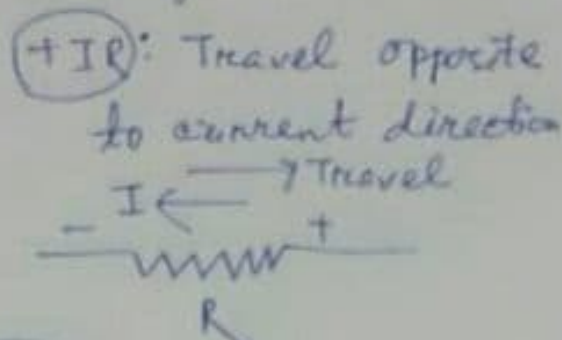 +IR: Travel opposite
to current direction
→ Travel
I ←
- +
R